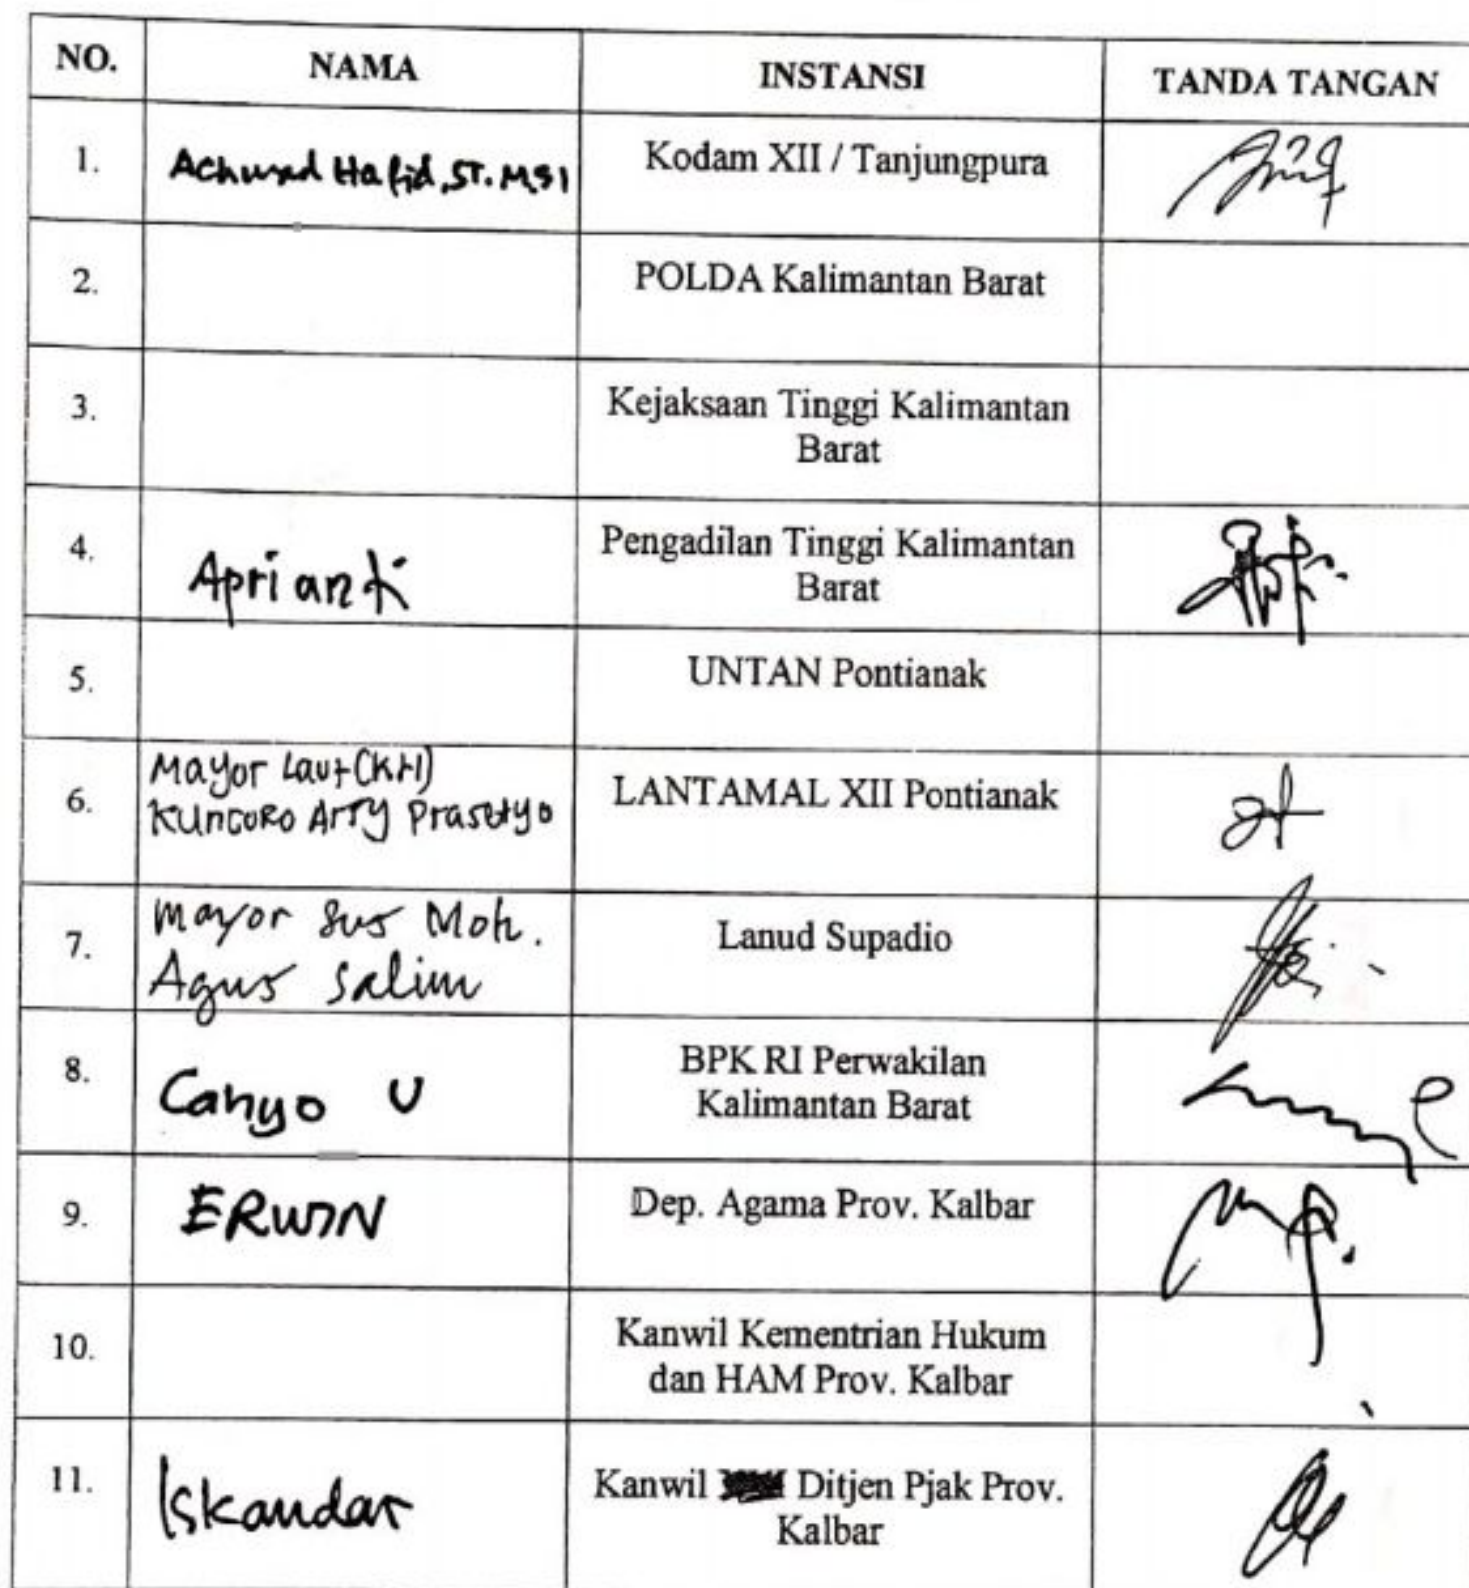 NO. NAMA INSTANSI TANDA TANGAN
1. Achmad Hafid, ST. MSI Kodam XII / Tanjungpura
2. POLDA Kalimantan Barat
3. Kejaksaan Tinggi Kalimantan
Barat
4. Aprianti Pengadilan Tinggi Kalimantan
Barat
5. UNTAN Pontianak
6. Mayor Laut (KH) LANTAMAL XII Pontianak
Kuncoro Arry Prasetyo
7. Mayor Sus Moh. Lanud Supadio
Agus Salim
8. Cahyo U BPK RI Perwakilan
Kalimantan Barat
9. ERWIN Dep. Agama Prov. Kalbar
10. Kanwil Kementrian Hukum
dan HAM Prov. Kalbar
11. Iskandar Kanwil Ditjen Pjak Prov.
Kalbar